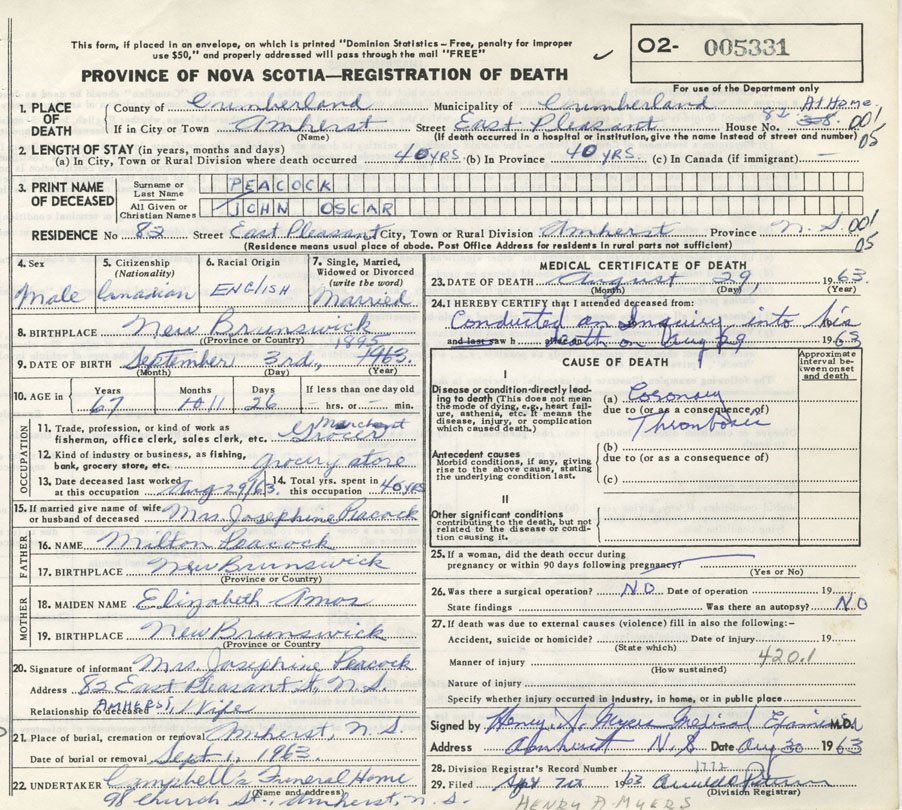 This form, if placed in an envelope, on which is printed "Dominion Statistics – Free, penalty for improper
use $50," and properly addressed will pass through the mail "FREE"
O2- 005331
PROVINCE OF NOVA SCOTIA—REGISTRATION OF DEATH
For use of the Department only
1. PLACE OF DEATH
County of Cumberland Municipality of Cumberland
82 At Home 001
If in City or Town Amherst Street East Pleasant House No.
05
(Name) (If death occurred in a hospital or institution, give the name instead of street and number)
2. LENGTH OF STAY (in years, months and days)
(a) In City, Town or Rural Division where death occurred 40 YRS. (b) In Province 40 YRS. (c) In Canada (if immigrant) —
3. PRINT NAME OF DECEASED
Surname or Last Name PEACOCK
All Given or Christian Names JOHN OSCAR
RESIDENCE No 82 Street East Pleasant City, Town or Rural Division Amherst Province N. S. 001
05
(Residence means usual place of abode. Post Office Address for residents in rural parts not sufficient)
4. Sex
Male
5. Citizenship
(Nationality)
Canadian
6. Racial Origin
ENGLISH
7. Single, Married,
Widowed or Divorced
(write the word)
Married
8. BIRTHPLACE New Brunswick
(Province or Country)
1895
9. DATE OF BIRTH September 3rd, 1963.
(Month) (Day) (Year)
10. AGE in
Years Months Days If less than one day old
67 10 11 26 hrs. or — min.
OCCUPATION
11. Trade, profession, or kind of work as
fisherman, office clerk, sales clerk, etc. Grocer Merchant
12. Kind of industry or business, as fishing,
bank, grocery store, etc. grocery store
13. Date deceased last worked
at this occupation Aug-29/63.
14. Total yrs. spent in
this occupation 40 YRS
15. If married give name of wife
or husband of deceased Mrs. Josephine Peacock
FATHER
16. NAME Milton Peacock
17. BIRTHPLACE New Brunswick
(Province or Country)
MOTHER
18. MAIDEN NAME Elizabeth Amos
19. BIRTHPLACE New Brunswick
(Province or Country)
20. Signature of informant Mrs. Josephine Peacock
Address 82 East Pleasant St, N. S.
AMHERST
Relationship to deceased Wife
21. Place of burial, cremation or removal Amherst, N. S.
Date of burial or removal Sept 1, 1963
22. UNDERTAKER Campbell's Funeral Home
(Name and address)
98 Church St., Amherst, N. S.
MEDICAL CERTIFICATE OF DEATH
23. DATE OF DEATH August 29, 1963
(Month) (Day) (Year)
24. I HEREBY CERTIFY that I attended deceased from:
Conducted an Inquiry into his
and last saw h death on Aug 29 1963
CAUSE OF DEATH
Approximate
interval be-
tween onset
and death
I
Disease or condition directly lead-
ing to death (This does not mean
the mode of dying, e.g., heart fail-
ure, asthenia, etc. It means the
disease, injury, or complication
which caused death.)
(a) Coronary
due to (or as a consequence of)
Thrombosis
(b)
due to (or as a consequence of)
(c)
Antecedent causes
Morbid conditions, if any, giving
rise to the above cause, stating
the underlying condition last.
II
Other significant conditions
contributing to the death, but not
related to the disease or condi-
tion causing it.
25. If a woman, did the death occur during
pregnancy or within 90 days following pregnancy?
(Yes or No)
26. Was there a surgical operation? NO Date of operation 19
State findings Was there an autopsy? NO
27. If death was due to external causes (violence) fill in also the following:–
Accident, suicide or homicide? Date of injury 19
(State which)
420.1
Manner of injury
(How sustained)
Nature of injury
Specify whether injury occurred in industry, in home, or in public place
Signed by Henry A. Myers Medical Examiner M.D.
Address Amherst N. S Date Aug 30 1963
28. Division Registrar's Record Number 1772
29. Filed Sept 7th 1963
(Division Registrar)
HENRY A. MYERS